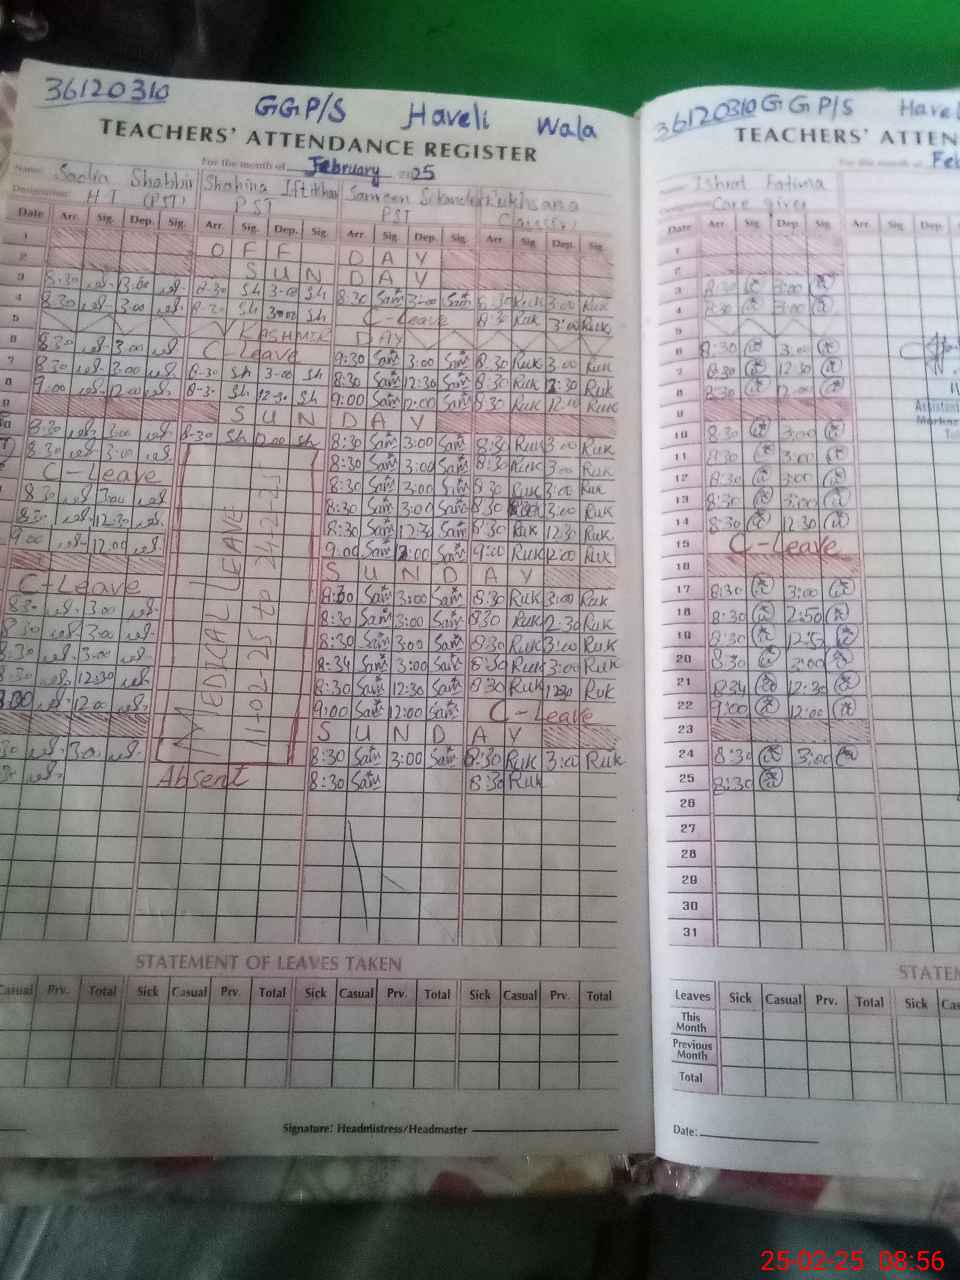 36120310
GGP/S Haveli Wala
TEACHERS' ATTENDANCE REGISTER
For the month of February 2025
Name: Sadia Shabbir Shahina Iftikhar Sameen Rukhsana
Designation: HT (PST) PST PST
Date Arr. Sig. Dep. Sig. Arr. Sig. Dep. Sig. Arr. Sig. Dep. Sig. Arr. Sig. Dep. Sig.
1 OFF DAY
2 SUN DAY
3 8:30 3:00 8-30 Sh 3-00 Sh 8:30 Sam 3:00 Sam 8:30 Ruk 3:00 Ruk
4 8:30 3:00 8-30 Sh 3-00 Sh C-Leave 8:30 Ruk 3:00 Ruk
5 KASHMIR DAY
6 8:30 3:00 C Leave 9:30 Sam 3:00 Sam 8:30 Ruk 3:00 Ruk
7 8:30 3:00 8-30 Sh 3-00 Sh 8:30 Sam 12:30 Sam 8:30 Ruk 12:30 Ruk
8 9:00 12:00 8-30 Sh 12-30 Sh 9:00 Sam 12:00 Sam 8:30 Ruk 12:00 Ruk
9 SUN DAY
10 8:30 3:00 8-30 Sh 12:00 Sh 8:30 Sam 3:00 Sam 8:30 Ruk 3:00 Ruk
8:30 3:00 8:30 Sam 3:00 Sam 8:30 Ruk 3:00 Ruk
C-Leave 8:30 Sam 3:00 Sam 8:30 Ruk 3:00 Ruk
8:30 3:00 8:30 Sam 3:00 Sam 8:30 3:00 Ruk
8:30 12:30 8:30 Sam 12:30 Sam 8:30 Ruk 12:30 Ruk
9:00 12:00 9:00 Sam 12:00 Sam 9:00 Ruk 12:00 Ruk
SUNDAY
C-Leave 8:30 Sam 3:00 Sam 8:30 Ruk 3:00 Ruk
8:30 3:00 8:30 Sam 3:00 Sam 8:30 Ruk 2:30 Ruk
8:30 3:00 8:30 Sam 3:00 Sam 8:30 Ruk 3:00 Ruk
8:30 3:00 8:34 Sam 3:00 Sam 8:30 Ruk 3:00 Ruk
8:30 12:30 8:30 Sam 12:30 Sam 8:30 Ruk 12:30 Ruk
8:30 12:00 9:00 Sam 12:00 Sam C-Leave
SUNDAY
8:30 3:00 8:30 Sam 3:00 Sam 8:30 Ruk 3:00 Ruk
Absent 8:30 Sam 8:30 Ruk
MEDICAL LEAVE
11-02-25 to 24-2-25
STATEMENT OF LEAVES TAKEN
Casual Prv. Total Sick Casual Prv. Total Sick Casual Prv. Total Sick Casual Prv. Total
Signature: Headmistress/Headmaster
36120310 GGP/S
TEACHERS' ATTEN
For the month of Feb
Name: Ishrat Fatima
Designation: Care giver
Date Arr. Sig. Dep. Sig. Arr. Sig. Dep.
1
2
3 8:30 3:00
4 8:30 3:00
5
6 8:30 3:00
7 8:30 12:30
8 8:30 12:00
9
10 8:30 3:00
11 8:30 3:00
12 8:30 3:00
13 8:30 3:00
14 8:30 12:30
15 C-Leave
16
17 8:30 3:00
18 8:30 2:50
19 8:30
20 8:30 3:00
21 8:34 12:30
22 9:00 12:00
23
24 8:30 3:00
25 8:30
26
27
28
29
30
31
STATEM
Leaves Sick Casual Prv. Total Sick Cas
This Month
Previous Month
Total
Date:
25-02-25 08:56